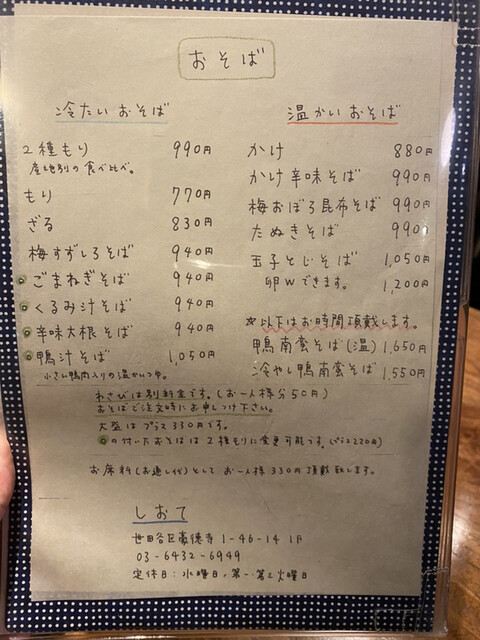 おそば
冷たいおそば
2種もり 990円
産地別の食べ比べ。
もり 770円
ざる 830円
梅すずしろそば 940円
ごまねぎそば 940円
くるみ汁そば 940円
辛味大根そば 940円
鴨汁そば 1,050円
小さい鴨肉入りの温かいつゆ。
温かいおそば
かけ 880円
かけ辛味そば 990円
梅おぼろ昆布そば 990円
たぬきそば 990円
玉子とじそば 1,050円
卵Wできます。 1,200円
☆以下はお時間頂戴します。
鴨南蛮そば(温) 1,650円
冷やし鴨南蛮そば 1,550円
わさびは別料金です。(お一人様分50円)
おそばご注文時にお申しつけ下さい。
大盛はプラス330円です。
◎の付いたおそばは2種もりに変更可能です。(プラス220円)
お席料(お通し代)としてお一人様330円頂戴致します。
しおて
世田谷区豪徳寺1-46-14 1F
03-6432-6949
定休日:水曜日、第一・第三火曜日